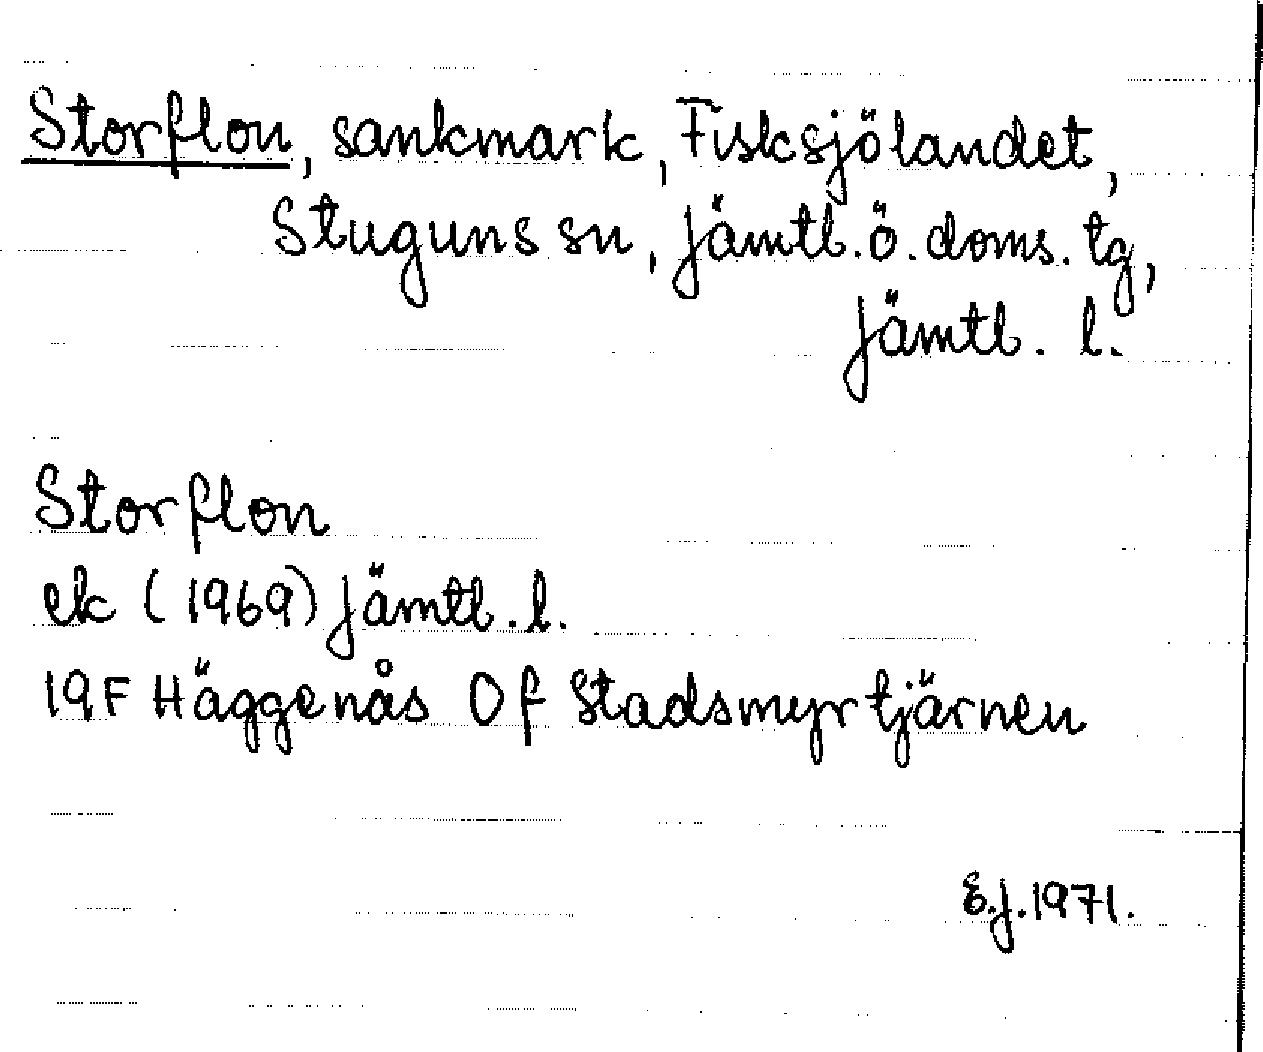 Storflon, sankmark, Fisksjölandet,
Stuguns sn, Jämtl. ö. doms. tg,
Jämtl. l.
Storflon
ek (1969) Jämtl. l.
19F Häggenås 0f Stadsmyrtjärnen
E.J. 1971.